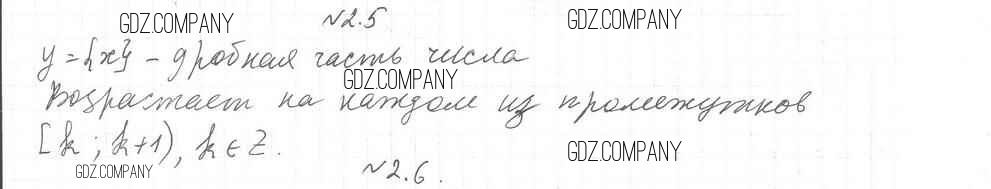 №2.5
GDZ.COMPANY GDZ.COMPANY
y = {x} - дробная часть числа
GDZ.COMPANY
Возрастает на каждом из промежутков
[k ; k+1), k ∈ Z.
GDZ.COMPANY
№2.6.
GDZ.COMPANY